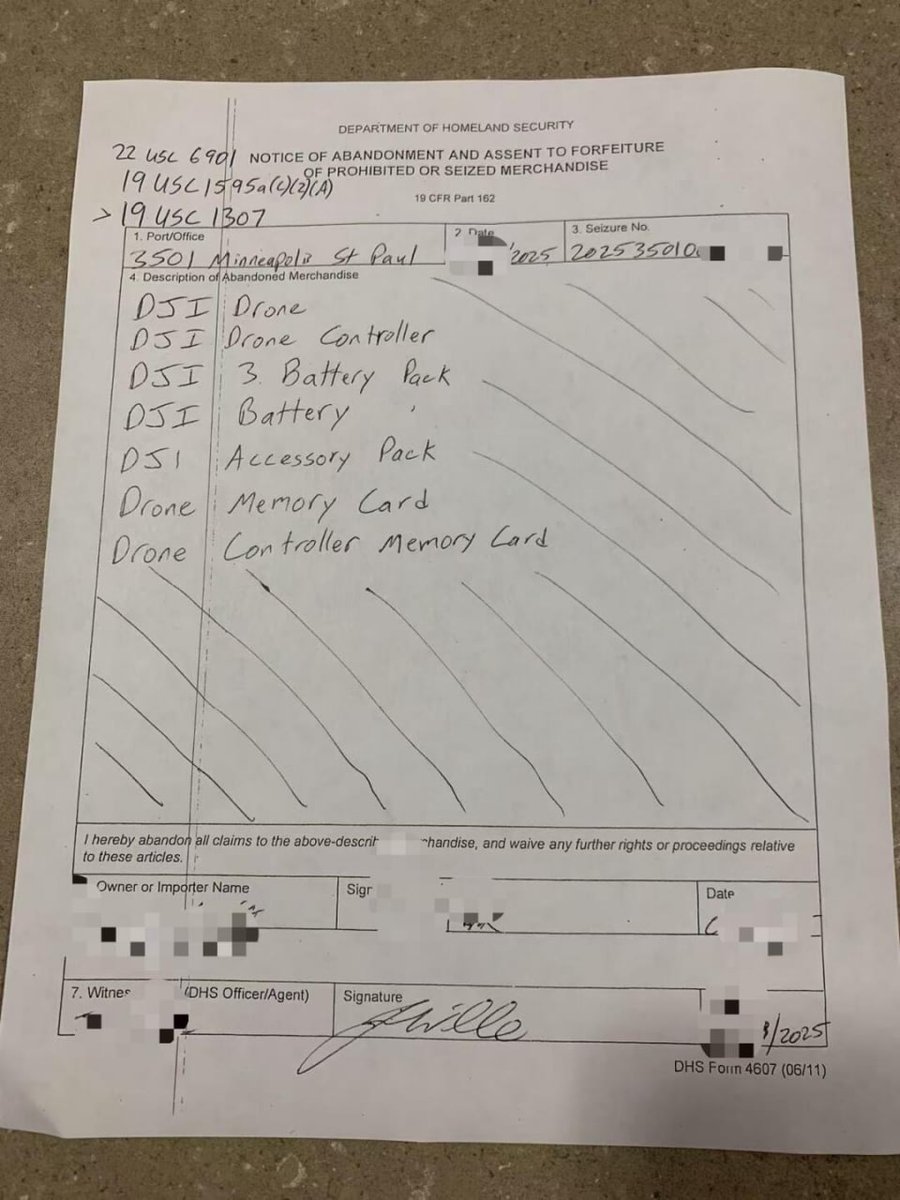 DEPARTMENT OF HOMELAND SECURITY
22 USC 6901 NOTICE OF ABANDONMENT AND ASSENT TO FORFEITURE
OF PROHIBITED OR SEIZED MERCHANDISE
19 USC 1595a(c)(2)(A)
19 CFR Part 162
> 19 USC 1307
1. Port/Office
2 Date
3. Seizure No.
3501 Minneapolis St Paul
/2025
202535010
4. Description of Abandoned Merchandise
DJI Drone
DJI Drone Controller
DJI 3. Battery Pack
DJI Battery
DJI Accessory Pack
Drone Memory Card
Drone Controller Memory Card
I hereby abandon all claims to the above-describ handise, and waive any further rights or proceedings relative
to these articles.
Owner or Importer Name
Sign
Date
7. Witnes (DHS Officer/Agent)
Signature
/2025
DHS Form 4607 (06/11)